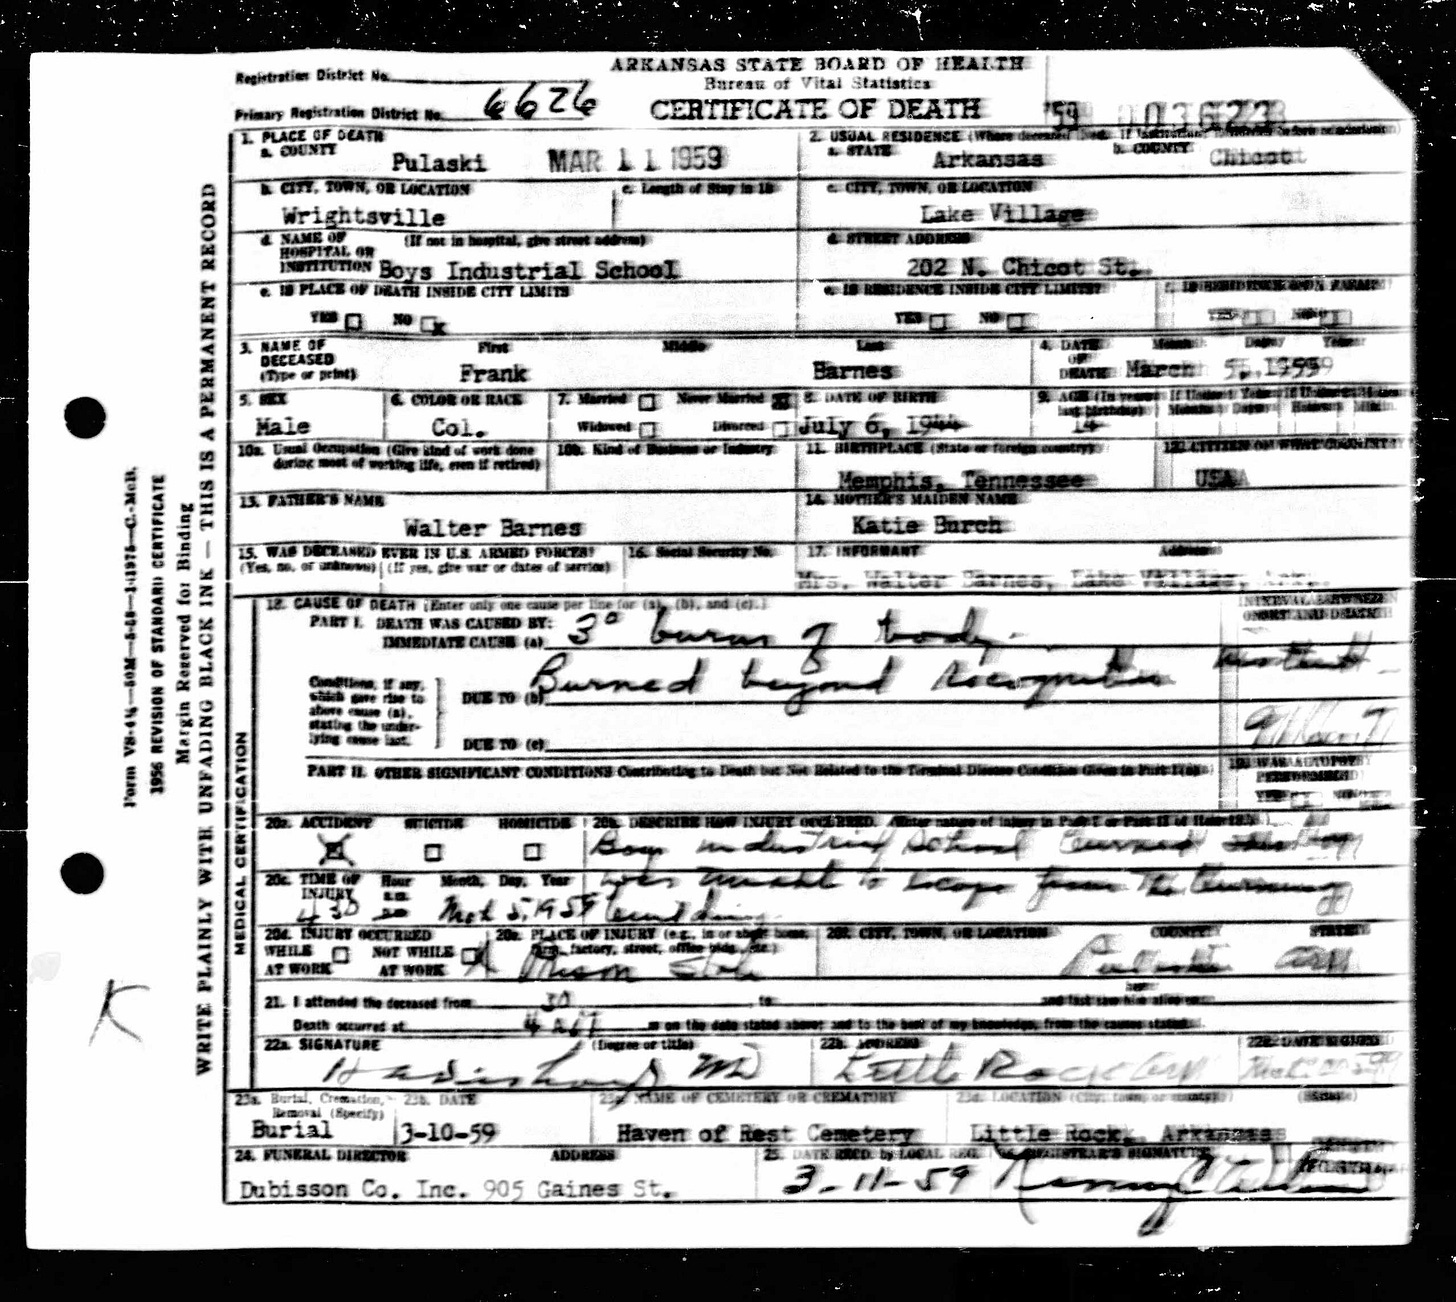 ARKANSAS STATE BOARD OF HEALTH
Bureau of Vital Statistics
CERTIFICATE OF DEATH
Registration District No.
Primary Registration District No. 6626
'59 003623
1. PLACE OF DEATH
a. COUNTY
Pulaski MAR 11 1959
2. USUAL RESIDENCE (Where deceased lived. If institution: residence before admission)
a. STATE Arkansas b. COUNTY Chicot
b. CITY, TOWN, OR LOCATION
Wrightsville
c. Length of Stay in 1b
c. CITY, TOWN, OR LOCATION
Lake Village
d. NAME OF HOSPITAL OR INSTITUTION (If not in hospital, give street address)
Boys Industrial School
d. STREET ADDRESS
202 N. Chicot St.
e. IS PLACE OF DEATH INSIDE CITY LIMITS
YES NO x
e. IS RESIDENCE INSIDE CITY LIMITS?
YES NO
f. IS RESIDENCE ON A FARM?
YES NO
3. NAME OF DECEASED (Type or print)
First Middle Last
Frank Barnes
4. DATE OF DEATH Month Day Year
March 5, 1959
5. SEX
Male
6. COLOR OR RACE
Col.
7. Married Never Married
Widowed Divorced
8. DATE OF BIRTH
July 6, 1944
9. AGE (In years last birthday) If Under 1 Year If Under 24 Hours
Months Days Hours Min.
14
10a. Usual Occupation (Give kind of work done during most of working life, even if retired)
10b. Kind of Business or Industry
11. BIRTHPLACE (State or foreign country)
Memphis, Tennessee
12. CITIZEN OF WHAT COUNTRY?
USA
13. FATHER'S NAME
Walter Barnes
14. MOTHER'S MAIDEN NAME
Katie Burch
15. WAS DECEASED EVER IN U.S. ARMED FORCES?
(Yes, no, or unknown) (If yes, give war or dates of service)
16. Social Security No.
17. INFORMANT Address
Mrs. Walter Barnes, Lake Village, Ark.
18. CAUSE OF DEATH [Enter only one cause per line for (a), (b), and (c).]
PART I. DEATH WAS CAUSED BY:
IMMEDIATE CAUSE (a) 3° burns of body.
INTERVAL BETWEEN ONSET AND DEATH
Conditions, if any, which gave rise to above cause (a), stating the underlying cause last.
DUE TO (b) Burned beyond recognition
DUE TO (c)
PART II. OTHER SIGNIFICANT CONDITIONS Contributing to Death but Not Related to the Terminal Disease Condition Given in Part I(a)
19. WAS AUTOPSY PERFORMED?
YES NO
20a. ACCIDENT SUICIDE HOMICIDE
20b. DESCRIBE HOW INJURY OCCURRED. (Enter nature of injury in Part I or Part II of item 18.)
Boys industrial school burned
was unable to escape from the burning
building.
20c. TIME OF INJURY Hour Month, Day, Year
430 Mch 5, 1959
20d. INJURY OCCURRED
WHILE AT WORK NOT WHILE AT WORK
20e. PLACE OF INJURY (e.g., in or about home, farm, factory, street, office bldg., etc.)
20f. CITY, TOWN, OR LOCATION COUNTY STATE
Pulaski Ark
21. I attended the deceased from to and last saw him alive on
Death occurred at m on the date stated above; and to the best of my knowledge, from the causes stated.
22a. SIGNATURE (Degree or title)
MD
22b. ADDRESS
Little Rock Ark
22c. DATE SIGNED
23a. Burial, Cremation, Removal (Specify)
Burial
23b. DATE
3-10-59
23c. NAME OF CEMETERY OR CREMATORY
Haven of Rest Cemetery
23d. LOCATION (City, town, or county) (State)
Little Rock, Arkansas
24. FUNERAL DIRECTOR ADDRESS
Dubisson Co. Inc. 905 Gaines St.
25. DATE RECD. by LOCAL REG.
3-11-59
26. REGISTRAR'S SIGNATURE
MEDICAL CERTIFICATION
WRITE PLAINLY WITH UNFADING BLACK INK — THIS IS A PERMANENT RECORD
Margin Reserved for Binding
1956 REVISION OF STANDARD CERTIFICATE
K